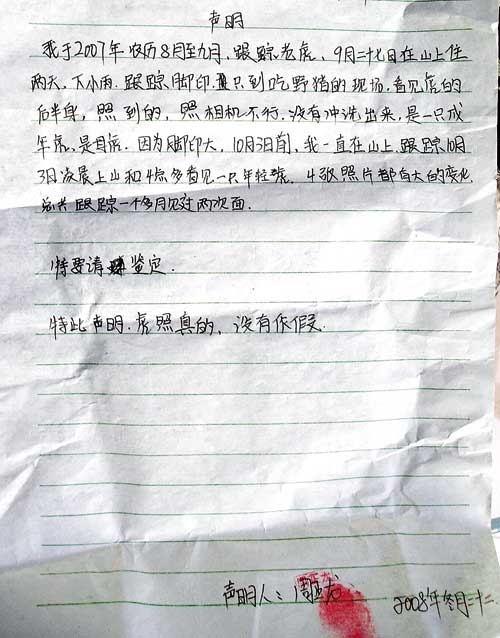 声明
我于2007年农历8月至九月，跟踪老虎，9月二十七日在山上住
两天，下小雨，跟踪脚印，只到吃野猪的现场，看见虎的
后半身，照到的，照相机不行，没有冲洗出来，是一只成
年虎，是母虎。因为脚印大，10月3日前，我一直在山上跟踪10月
3日凌晨上山和4点多看见一只年轻虎，4张照片都有大的变化
总共跟踪一个多月见过两次面。
特要请鉴定.
特此声明.虎照真的，没有作假.
声明人：周正龙
2008年冬月二十二